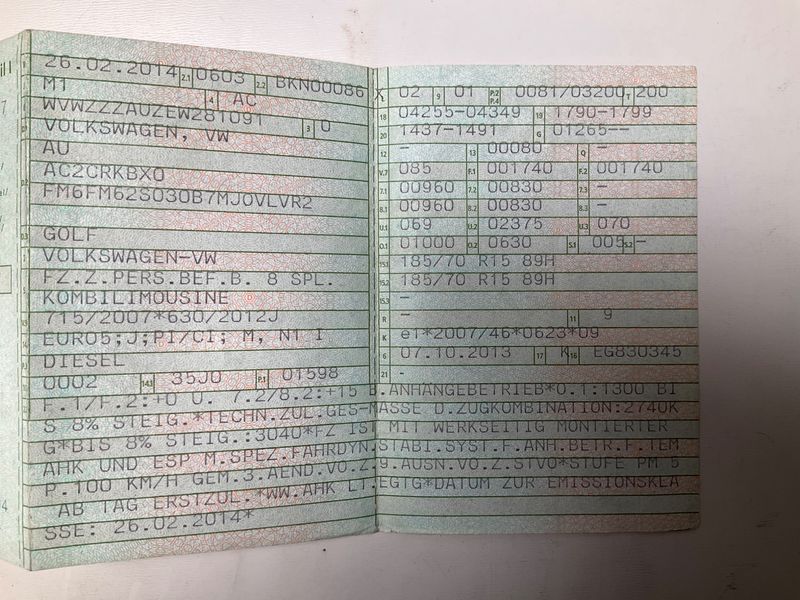 26.02.2014 2.1 0603 2.2 BKN00086 X
M1 4 AC
WVWZZZAUZEW281091 3 0
VOLKSWAGEN, VW
AU
AC2CRKBX0
FM6FM62S030B7MJOVLVR2
GOLF
VOLKSWAGEN-VW
FZ.Z.PERS.BEF.B. 8 SPL.
KOMBILIMOUSINE
715/2007*630/2012J
EURO5;J;PI/CI; M, N1 I
DIESEL
0002 14.1 35J0 P.1 01598
02 9 01 P.2 P.4 0081/03200 T 200
18 04255-04349 19 1790-1799
20 1437-1491 G 01265--
12 - 13 00080 Q -
V.7 085 F.1 001740 F.2 001740
7.1 00960 7.2 00830 7.3 -
8.1 00960 8.2 00830 8.3 -
U.1 069 U.2 02375 U.3 070
O.1 01000 O.2 0630 S.1 005 S.2 -
15.1 185/70 R15 89H
15.2 185/70 R15 89H
15.3 -
R - 11 9
K e1*2007/46*0623*09
6 07.10.2013 17 K 16 EG830345
21 -
F.1/F.2:+0 U. 7.2/8.2:+15 B.ANHÄNGEBETRIEB*O.1:1300 BI
S 8% STEIG.*TECHN.ZUL.GES-MASSE D.ZUGKOMBINATION:2740K
G*BIS 8% STEIG.:3040*FZ IST MIT WERKSEITIG MONTIERTER
AHK UND ESP M.SPEZ.FAHRDYN.STABI.SYST.F.ANH.BETR.F.TEM
P.100 KM/H GEM.3.AEND.VO.Z.9.AUSN.VO.Z.STVO*STUFE PM 5
AB TAG ERSTZUL.*WW.AHK LT.EGTG*DATUM ZUR EMISSIONSKLA
SSE: 26.02.2014*